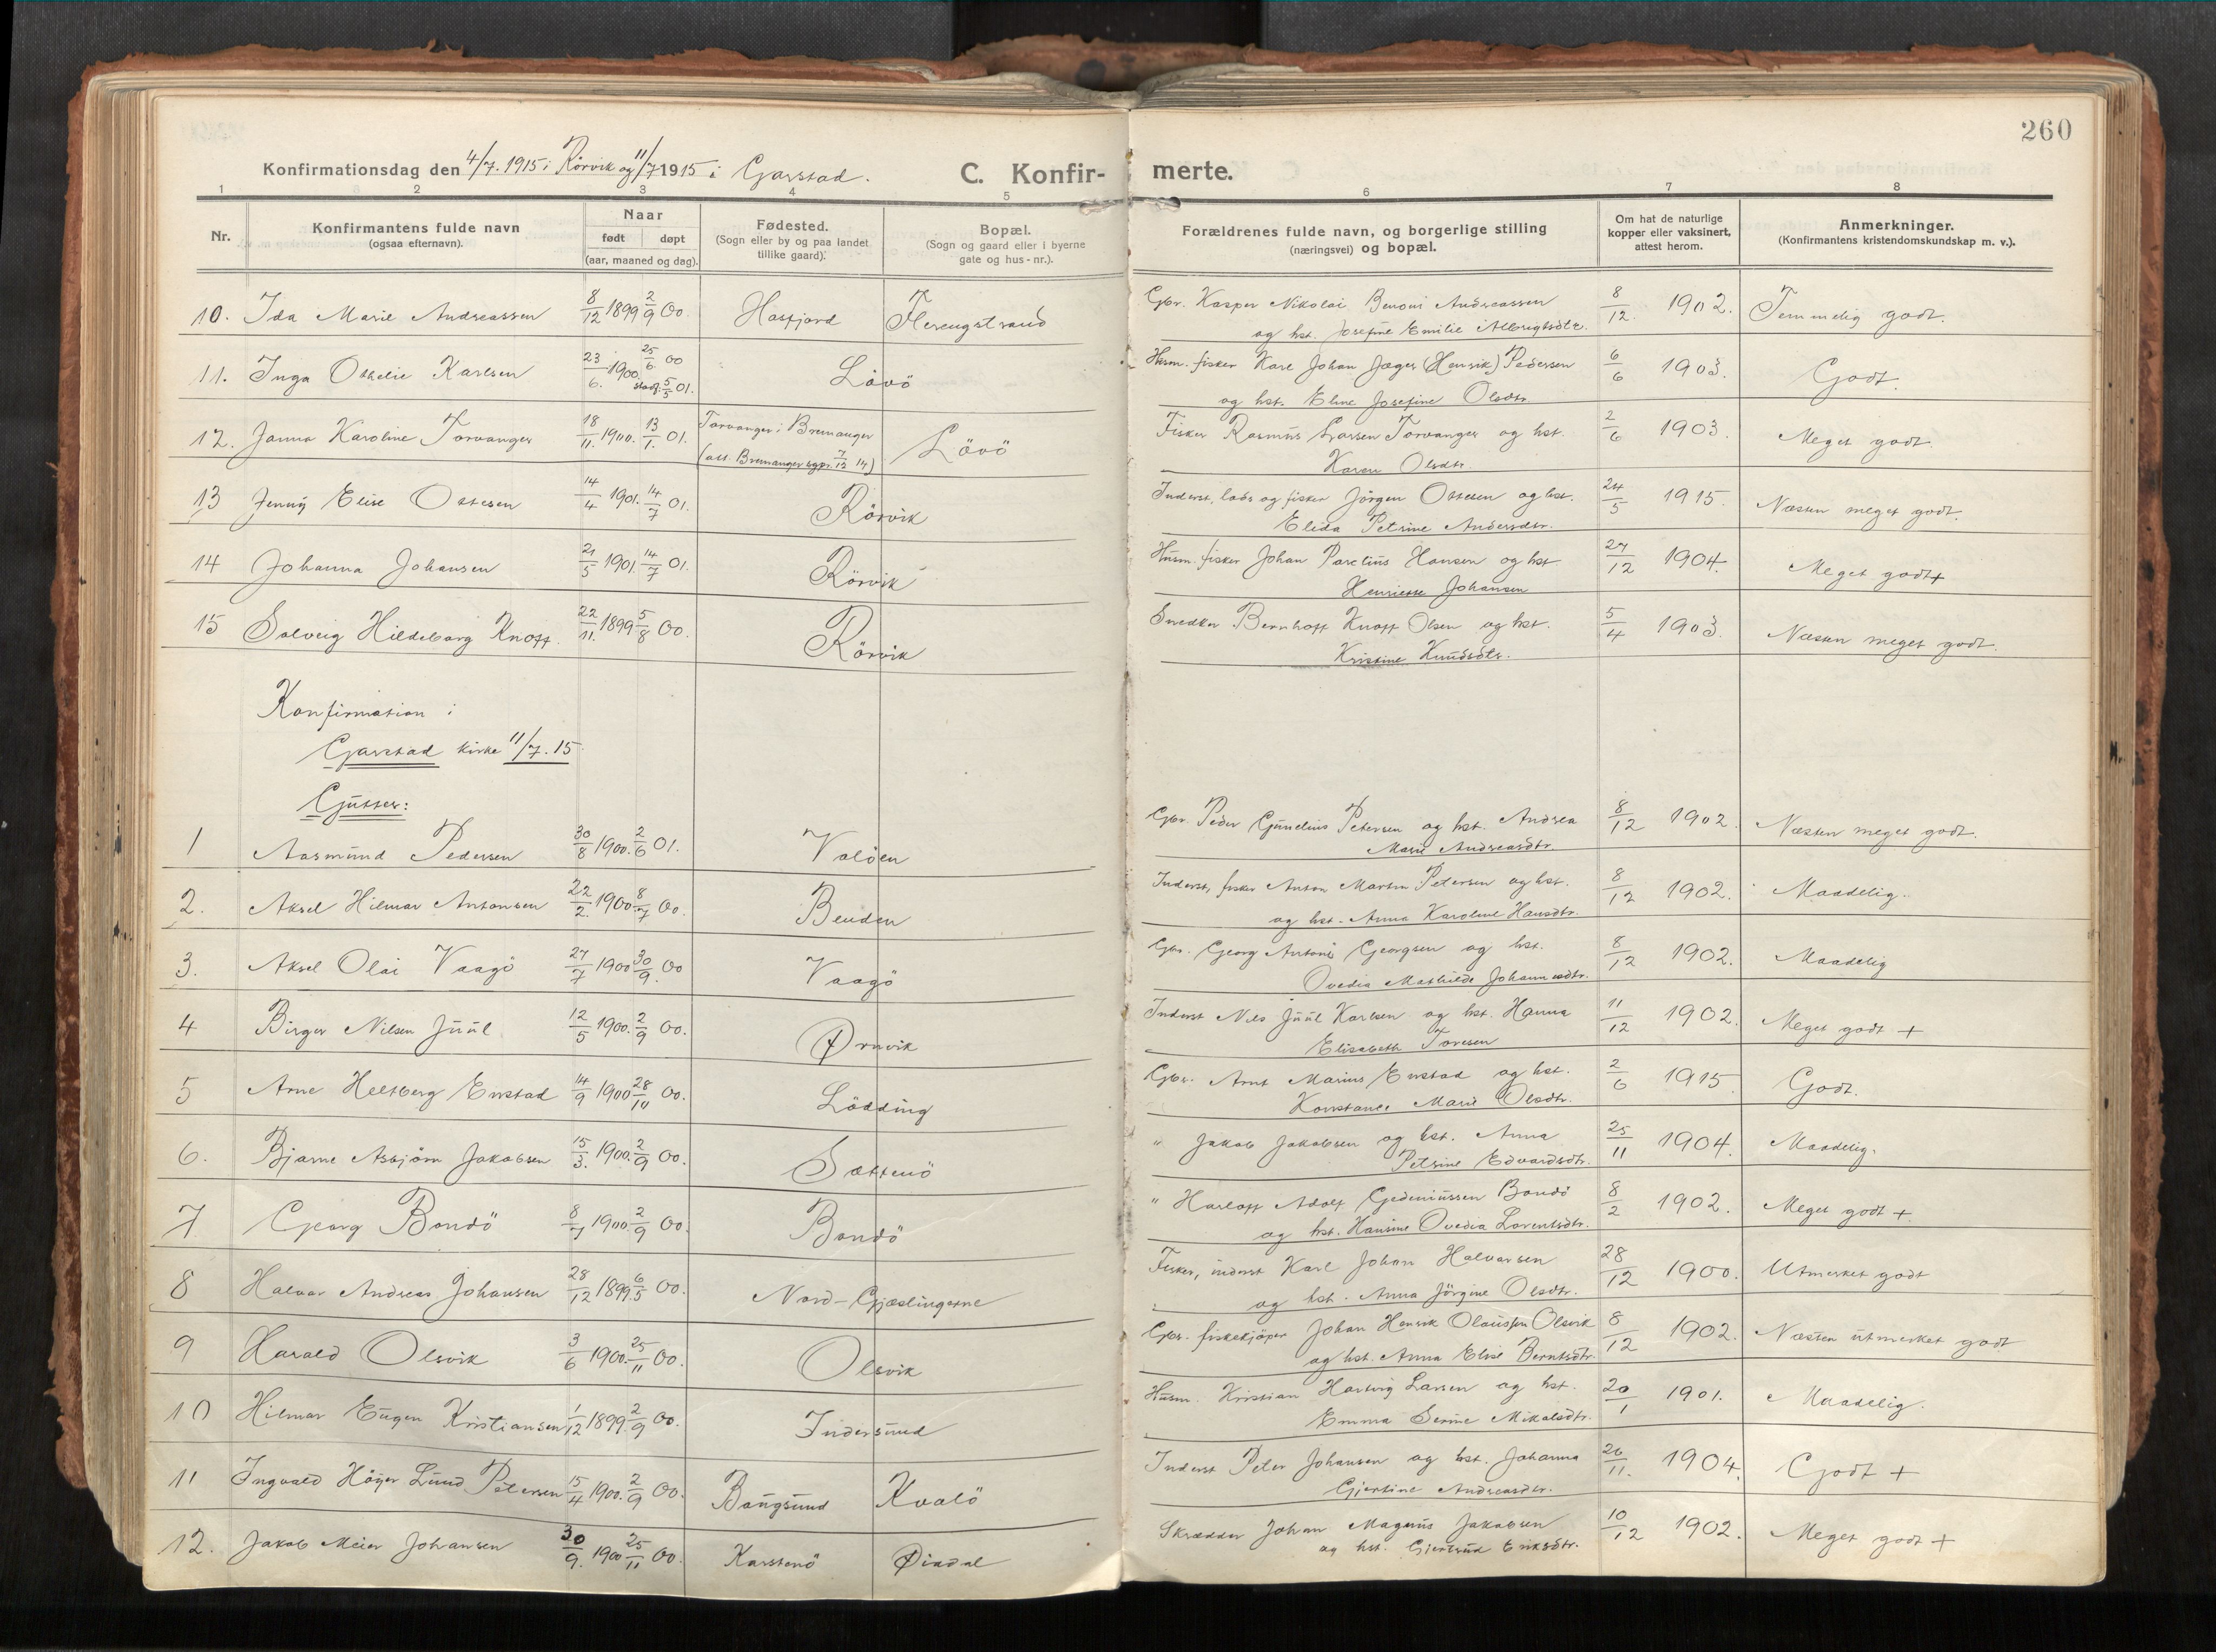 260
Konfirmationsdag den 4/7. 1915 i Rörvik og 11/7 1915 i Garstad.
C. Konfir- merte.
1 2 3 4 5 6 7 8
Nr.
Konfirmantens fulde navn
(ogsaa efternavn).
Naar
født døpt
(aar, maaned og dag).
Fødested.
(Sogn eller by og paa landet
tillike gaard).
Bopæl.
(Sogn og gaard eller i byerne
gate og hus-nr.).
Forældrenes fulde navn, og borgerlige stilling
(næringsvei) og bopæl.
Om hat de naturlige
kopper eller vaksinert,
attest herom.
Anmerkninger.
(Konfirmantens kristendomskundskap m. v.).
10. Ida Marie Andreassen 8/12 1899 2/9 00. Hasfjord Flerengstrand Gbr. Kasper Nikolai Benoni Andreassen 8/12. 1902. Temmelig godt.
og hst. Josefine Emilie Albrigtsdtr.
11. Inga Othelie Karlsen 23/6. 1900. 25/6. 00 stadf. 5/5 01. Lövö Husm. fisker Karl Johan Jæger (Henrik) Pedersen 6/6 1903. Godt.
og hst. Eline Josefine Olsdtr.
12. Janna Karoline Torvanger 18/11. 1900. 13/1. 01. Torvanger i Bremanger Lövö Fisker Rasmus Larsen Torvanger og hst. 2/6 1903. Meget godt.
(att. Bremanger sgpr. 7/12 14) Karen Olsdtr.
13 Jenny Elise Ottesen 14/4 1901. 14/7 01. Rörvik Inderst, lods og fisker Jörgen Ottesen og hst. 24/5 1915. Næsten meget godt.
Elida Petrine Andersdtr.
14 Johanna Johansen 21/5 1901. 14/7 01. Rörvik Husm. fisker Johan Parelius Hansen og hst 27/12 1904. Meget godt+
Henriette Johansen
15 Solveig Hildeborg Knoff. 22/11. 1899 5/8 00. Rörvik Snedker Bernhoff Knoff Olsen og hst. 5/4 1903. Næsten meget godt.
Kristine Knudsdtr.
Konfirmation i
Garstad kirke 11/7. 15.
Gutter:
1 Aasmund Pedersen 30/8 1900. 2/6 01. Valöen Gbr. Peder Gunelius Petersen og hst. Andrea 8/12 1902. Næsten meget godt.
Marie Andreasdtr.
2. Aksel Hilmar Antonsen 22/2. 1900. 8/7 00. Benden Inderst, fisker Anton Martin Petersen og hst. 8/12 1902. Maadelig.
og hst. Anna Karoline Hansdtr.
3. Aksel Olai Vaagö 27/7 1900 30/9. 00 Vaagö Gbr. Georg Antoni Georgsen og hst. 8/12 1902. Maadelig
Ovedia Mathilde Johannesdtr.
4 Birger Nilsen Juul 12/5 1900. 2/9 00. Ørnvik Inderst Nils Juul Karlsen og hst. Hanna 11/12 1902. Meget godt +
Elisabeth Toresen
5 Arne Heltberg Enstad 14/9 1900 28/10 00. Lödding Gbr. Arnt Marius Enstad og hst. 2/6 1915 Godt.
Konstance Marie Olsdtr.
6. Bjarne Asbjörn Jakobsen 15/3. 1900. 2/9 00. Sættenö " Jakob Jakobsen og hst. Anna 25/11 1904. Maadelig.
Petrine Edvardsdtr.
7 Georg Bondö 8/7 1900. 2/9 00. Bondö " Harloff Adolf Gedeniussen Bondö 8/2 1902. Meget godt +
og hst. Hansine Ovedia Lorentsdtr.
8 Halvar Andreas Johansen 28/12 1899. 6/5 00. Nord-Gjæslingerne Fisker, inderst Karl Johan Halvorsen 28/12 1900. Utmerket godt
og hst. Anna Jörgine Olsdtr.
9 Harald Olsvik 3/6 1900. 25/11 00. Olsvik Gbr. fiskekjöper Johan Henrik Olaussen Olsvik 8/12 1902. Næsten utmerket godt
og hst. Anna Elise Berntsdtr.
10 Hilmar Eugen Kristiansen 1/12 1899. 2/9 00. Indersund Husm. Kristian Hartvig Larsen og hst. 20/1 1901. Maadelig.
Emma Serine Mikalsdtr.
11 Ingvald Höyer Lund Petersen 15/4 1900. 2/9 00. Bangsund Kvalö Inderst Peter Johansen og hst. Johanna 26/11. 1904. Godt +
Gjertine Andreasdtr.
12. Jakob Meier Johansen 30/9. 1900 25/11 00. Karstenö Øiadal Skrædder Johan Magnus Jakobsen 10/12 1902. Meget godt +
og hst. Gjertrud Eriksdtr.